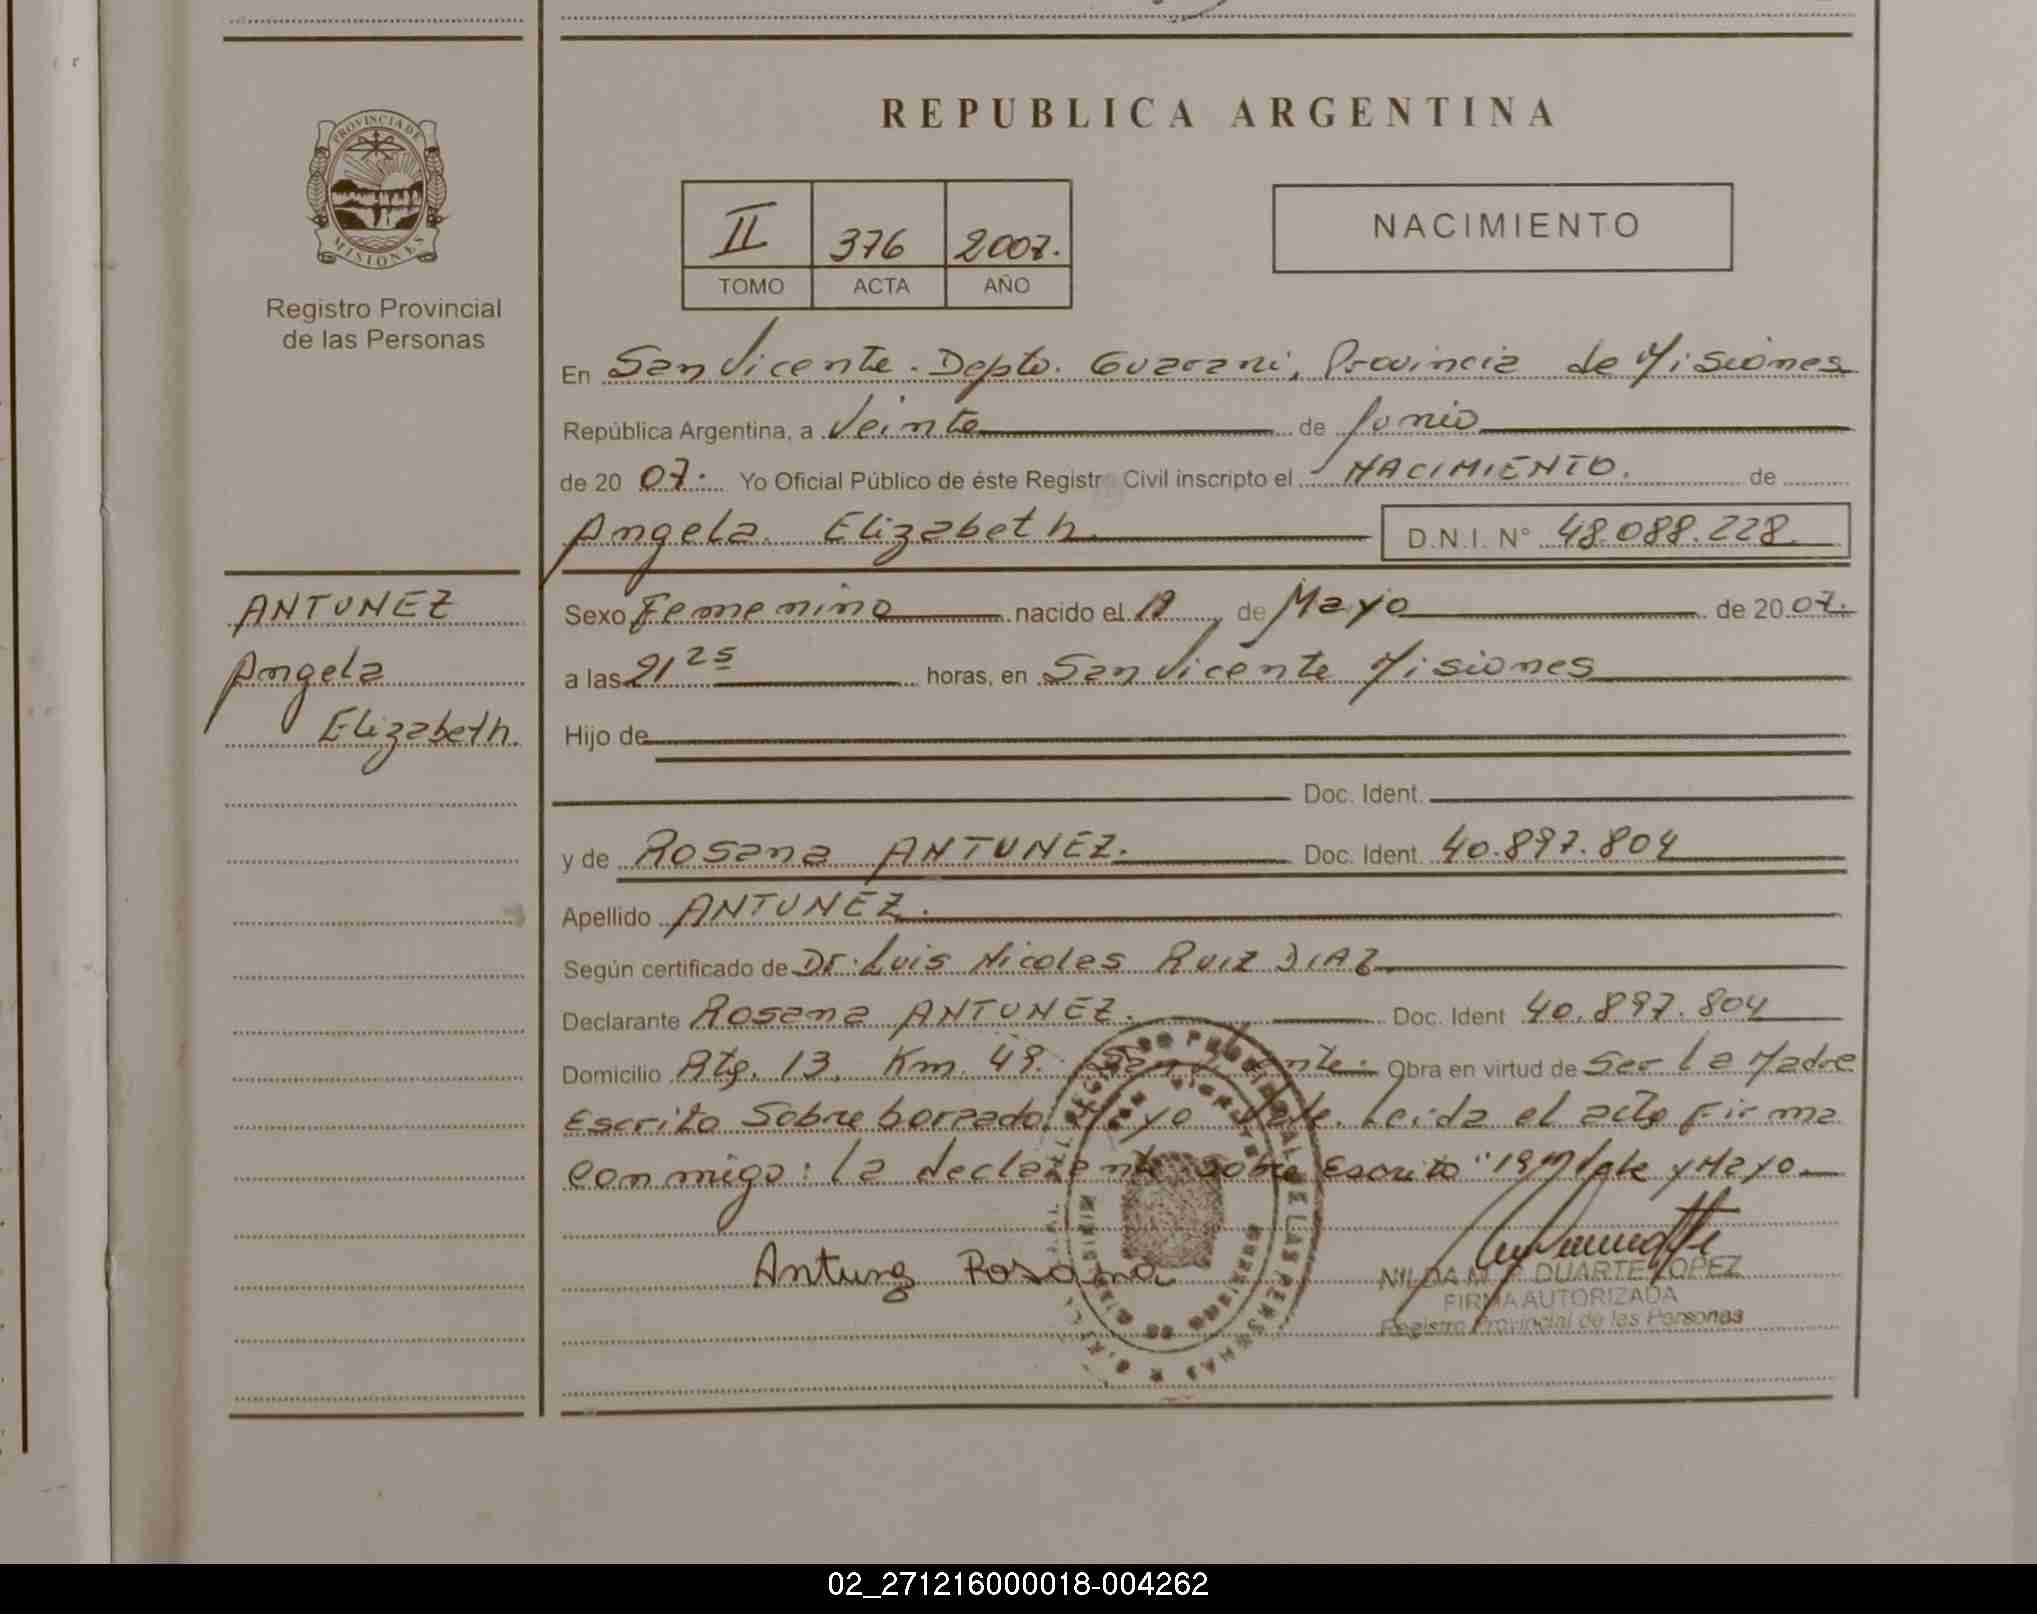 PROVINCIA DE
MISIONES
Registro Provincial
de las Personas
REPUBLICA ARGENTINA
II 376 2007.
TOMO ACTA AÑO
NACIMIENTO
En San Vicente. Depto. Guarani, Provincia de Misiones
República Argentina, a Veinte de Junio
de 20 07. Yo Oficial Público de éste Registro Civil inscripto el NACIMIENTO. de
Angela Elizabeth. D.N.I. N° 48.088.228.
ANTUNEZ
Angela
Elizabeth.
Sexo Femenino nacido el 19 de Mayo de 20 07.
a las 21 25 horas, en San Vicente Misiones
Hijo de
Doc. Ident.
y de Rosana ANTUNEZ. Doc. Ident. 40.897.804
Apellido ANTUNEZ.
Según certificado de Dr. Luis Nicolas RUIZ DIAZ.
Declarante Rosana ANTUNEZ. Doc. Ident 40.897.804
Domicilio Rta. 13. Km. 49. San Vicente. Obra en virtud de Ser la Madre
Escrito Sobre borrado: Mayo Vale. Leida el acta Firma
Conmigo: la declarante sobre Escrito "19" Vale y Mayo
Antunez Rosana
NILDA M. DUARTE LOPEZ
FIRMA AUTORIZADA
Registro Provincial de las Personas
02_271216000018-004262